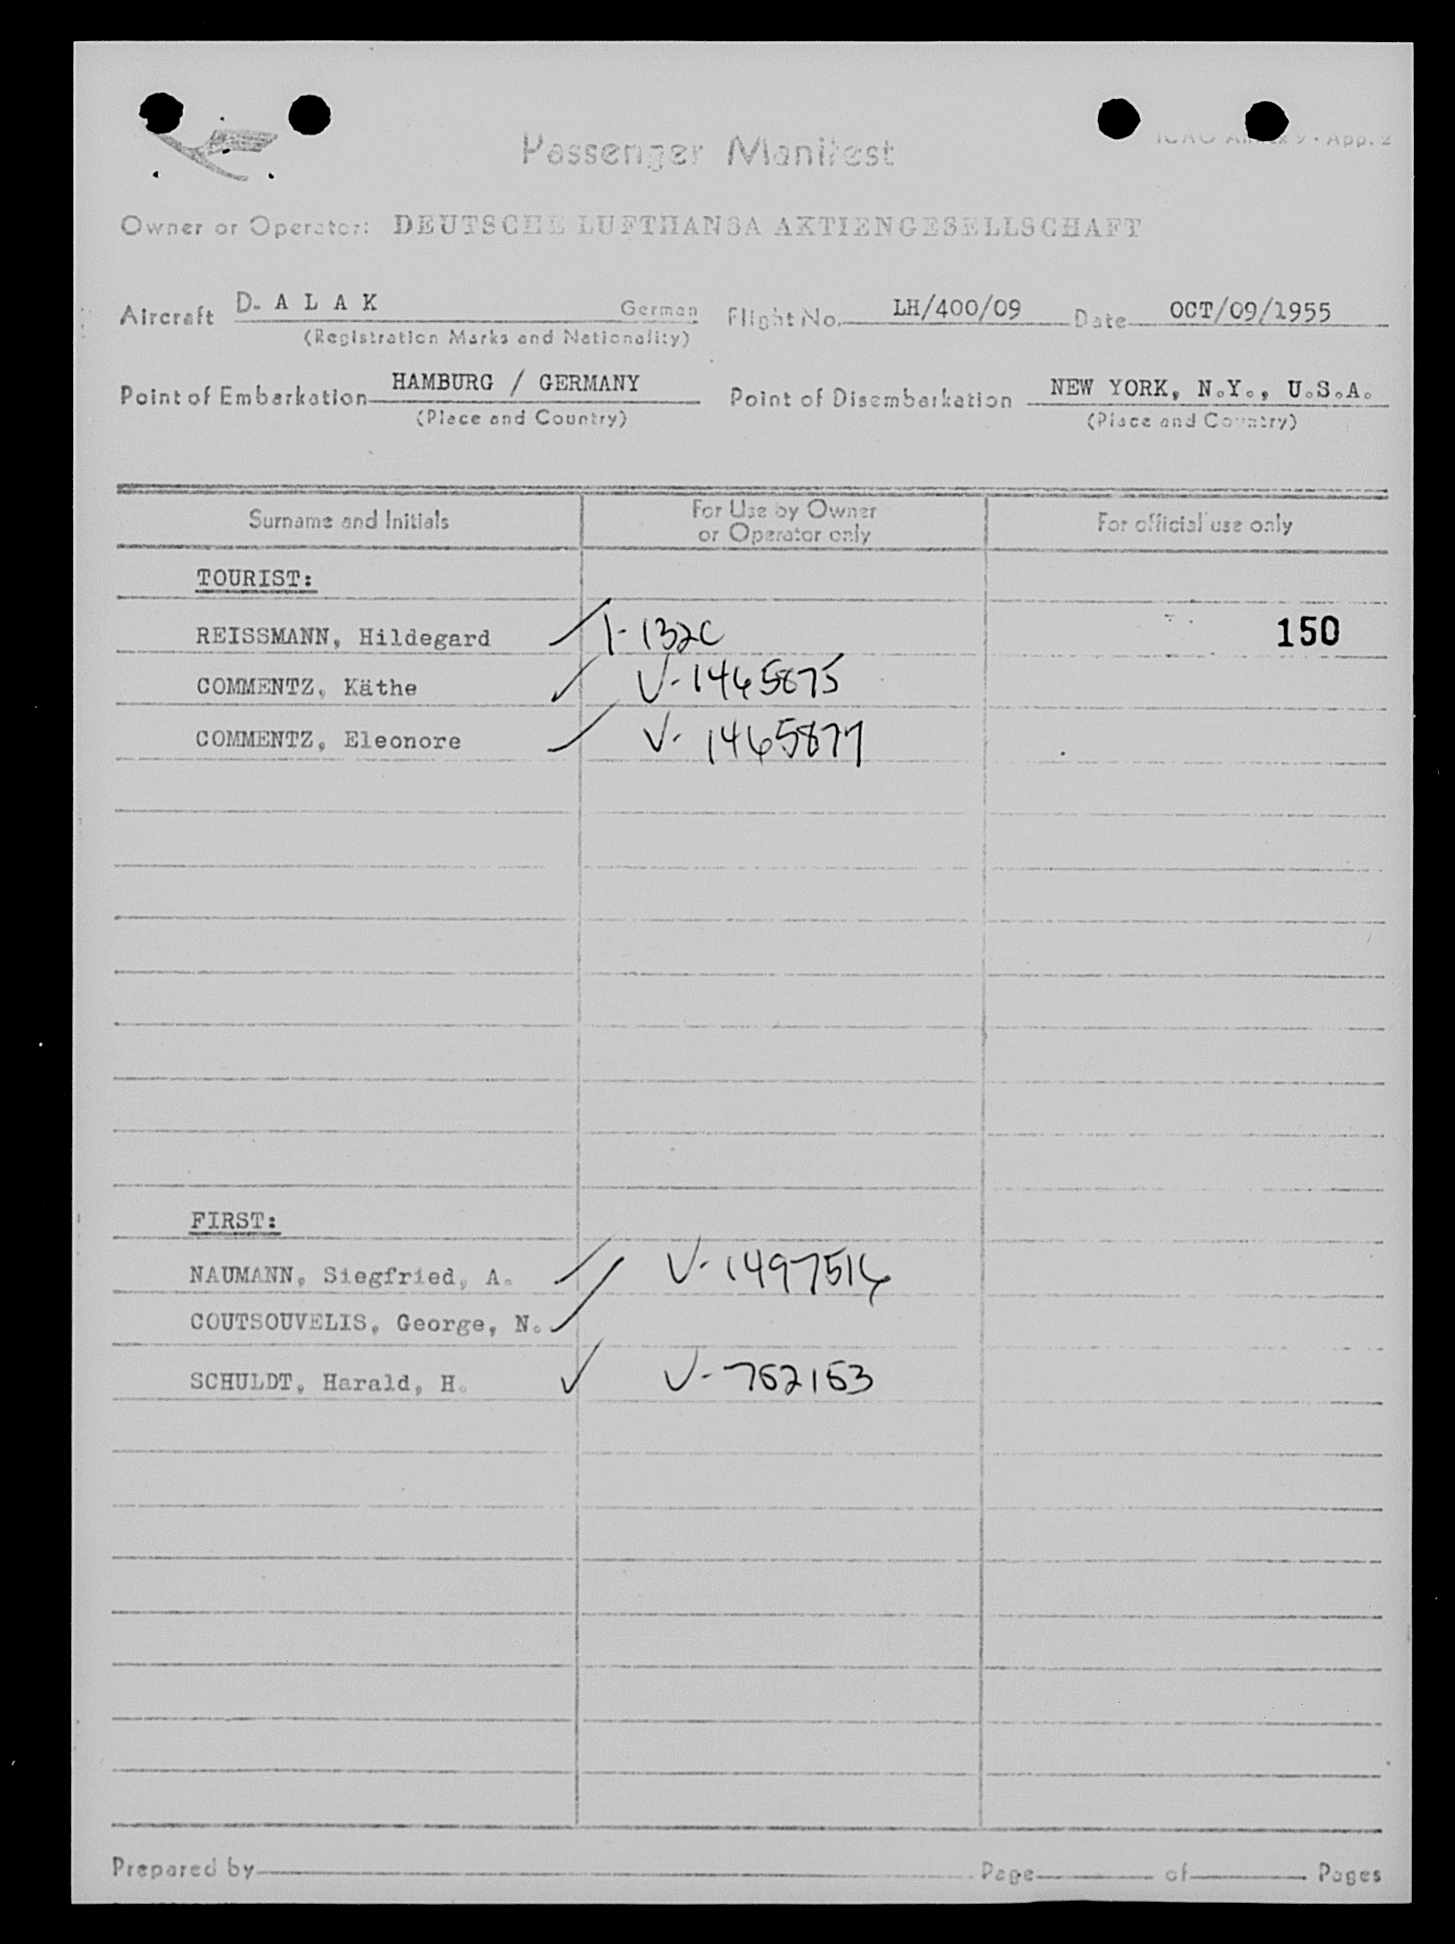 Passenger Manifest
ICAO Annex 9 - App. 2
Owner or Operator: DEUTSCHE LUFTHANSA AKTIENGESELLSCHAFT
Aircraft D- A L A K German Flight No. LH/400/09 Date OCT/09/1955
(Registration Marks and Nationality)
Point of Embarkation HAMBURG / GERMANY Point of Disembarkation NEW YORK, N.Y., U.S.A.
(Place and Country) (Place and Country)
Surname and Initials For Use by Owner or Operator only For official use only
TOURIST:
REISSMANN, Hildegard 1-132C 150
COMMENTZ, Käthe V-1465875
COMMENTZ, Eleonore V-1465877
FIRST:
NAUMANN, Siegfried, A. V-1497516
COUTSOUVELIS, George, N.
SCHULDT, Harald, H. V-762163
Prepared by Page of Pages